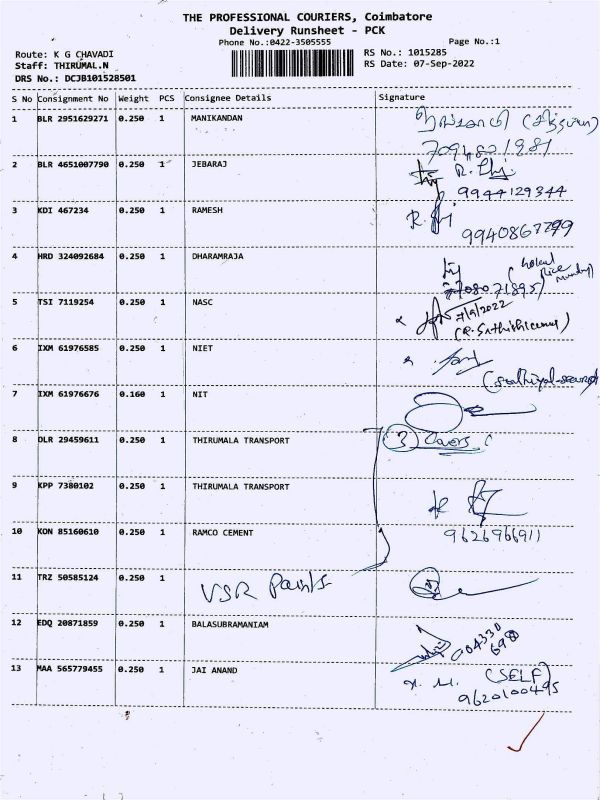 THE PROFESSIONAL COURIERS, Coimbatore
Delivery Runsheet - PCK
Phone No.:0422-3505555
Page No.:1
Route: K G CHAVADI
Staff: THIRUMAL.N
DRS No.: DCJB101528501
RS No.: 1015285
RS Date: 07-Sep-2022
S No Consignment No Weight PCS Consignee Details Signature
1 BLR 2951629271 0.250 1 MANIKANDAN
7094801981
2 BLR 4651007790 0.250 1 JEBARAJ
9944129344
3 KDI 467234 0.250 1 RAMESH
9940867299
4 HRD 324092684 0.250 1 DHARAMRAJA
5 TSI 7119254 0.250 1 NASC
7/9/2022
6 IXM 61976585 0.250 1 NIET
7 IXM 61976676 0.160 1 NIT
8 DLR 29459611 0.250 1 THIRUMALA TRANSPORT
3 Covers
9 KPP 7380102 0.250 1 THIRUMALA TRANSPORT
10 KON 85160610 0.250 1 RAMCO CEMENT
9626966911
11 TRZ 50585124 0.250 1 VSR Paints
12 EDQ 20871859 0.250 1 BALASUBRAMANIAM
13 MAA 565779455 0.250 1 JAI ANAND
(SELF)
9620100495